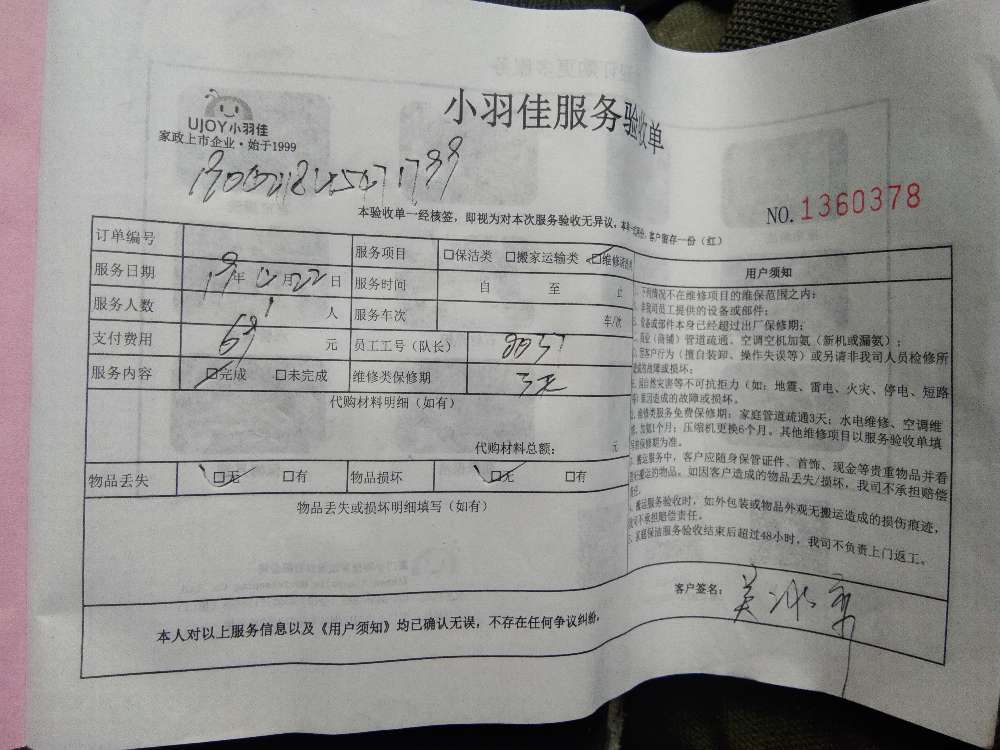 小羽佳服务验收单
UJOY小羽佳
家政上市企业·始于1999
NO. 1360378
本验收单一经核签，即视为对本次服务验收无异议，客户留存一份（红）
订单编号 服务项目 □保洁类 □搬家运输类 □维修
服务日期 19年12月22日 服务时间 自 至 止
服务人数 1人 服务车次 车/次
支付费用 69元 员工工号（队长）
服务内容 □完成 □未完成 维修类保修期 3天
代购材料明细（如有）
代购材料总额： 元
物品丢失 □无 □有 物品损坏 □无 □有
物品丢失或损坏明细填写（如有）
本人对以上服务信息以及《用户须知》均已确认无误，不存在任何争议纠纷。
用户须知
下列情况不在维修项目的维保范围之内：
非我司员工提供的设备或部件；
设备或部件本身已经超过出厂保修期；
商业（商铺）管道疏通、空调空机加氨（新机或漏氨）；
因客户行为（擅自装卸、操作失误等）或另请非我司人员检修所
造成的故障或损坏；
因自然灾害等不可抗拒力（如：地震、雷电、火灾、停电、短路
等）原因造成的故障或损坏。
维修类服务免费保修期：家庭管道疏通3天；水电维修、空调维
修、加氨1个月；压缩机更换6个月。其他维修项目以服务验收单填
写的保修期为准。
搬运服务中，客户应随身保管证件、首饰、现金等贵重物品并看
管好搬运的物品。如因客户造成的物品丢失/损坏，我司不承担赔偿
责任。
搬运服务验收时，如外包装或物品外观无搬运造成的损伤痕迹，
我司不承担赔偿责任。
家庭保洁服务验收结束后超过48小时，我司不负责上门返工。
客户签名：